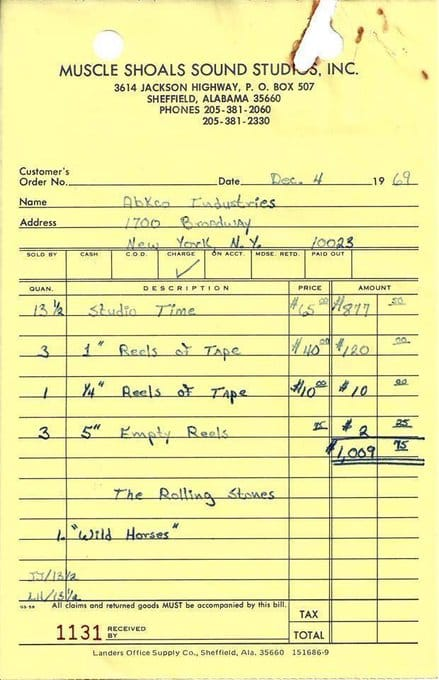 MUSCLE SHOALS SOUND STUDIOS, INC.
3614 JACKSON HIGHWAY, P. O. BOX 507
SHEFFIELD, ALABAMA 35660
PHONES 205-381-2060
205-381-2330
Customer's
Order No. Date Dec. 4 1969
Name Abkco Industries
Address 1700 Broadway
New York, N.Y. 10023
SOLD BY CASH C.O.D. CHARGE ON ACCT. MDSE. RETD. PAID OUT
✓
QUAN. DESCRIPTION PRICE AMOUNT
13 1/2 Studio Time $65 00 $877 50
3 1" Reels of Tape $40 00 $120 00
1 1/4" Reels of Tape $10 00 $10 00
3 5" Empty Reels 75 $2 25
$1,009 75
The Rolling Stones
1. "Wild Horses"
JJ/13 1/2
LH/13 1/2
All claims and returned goods MUST be accompanied by this bill.
TAX
1131 RECEIVED BY TOTAL
Landers Office Supply Co., Sheffield, Ala. 35660 151686-9